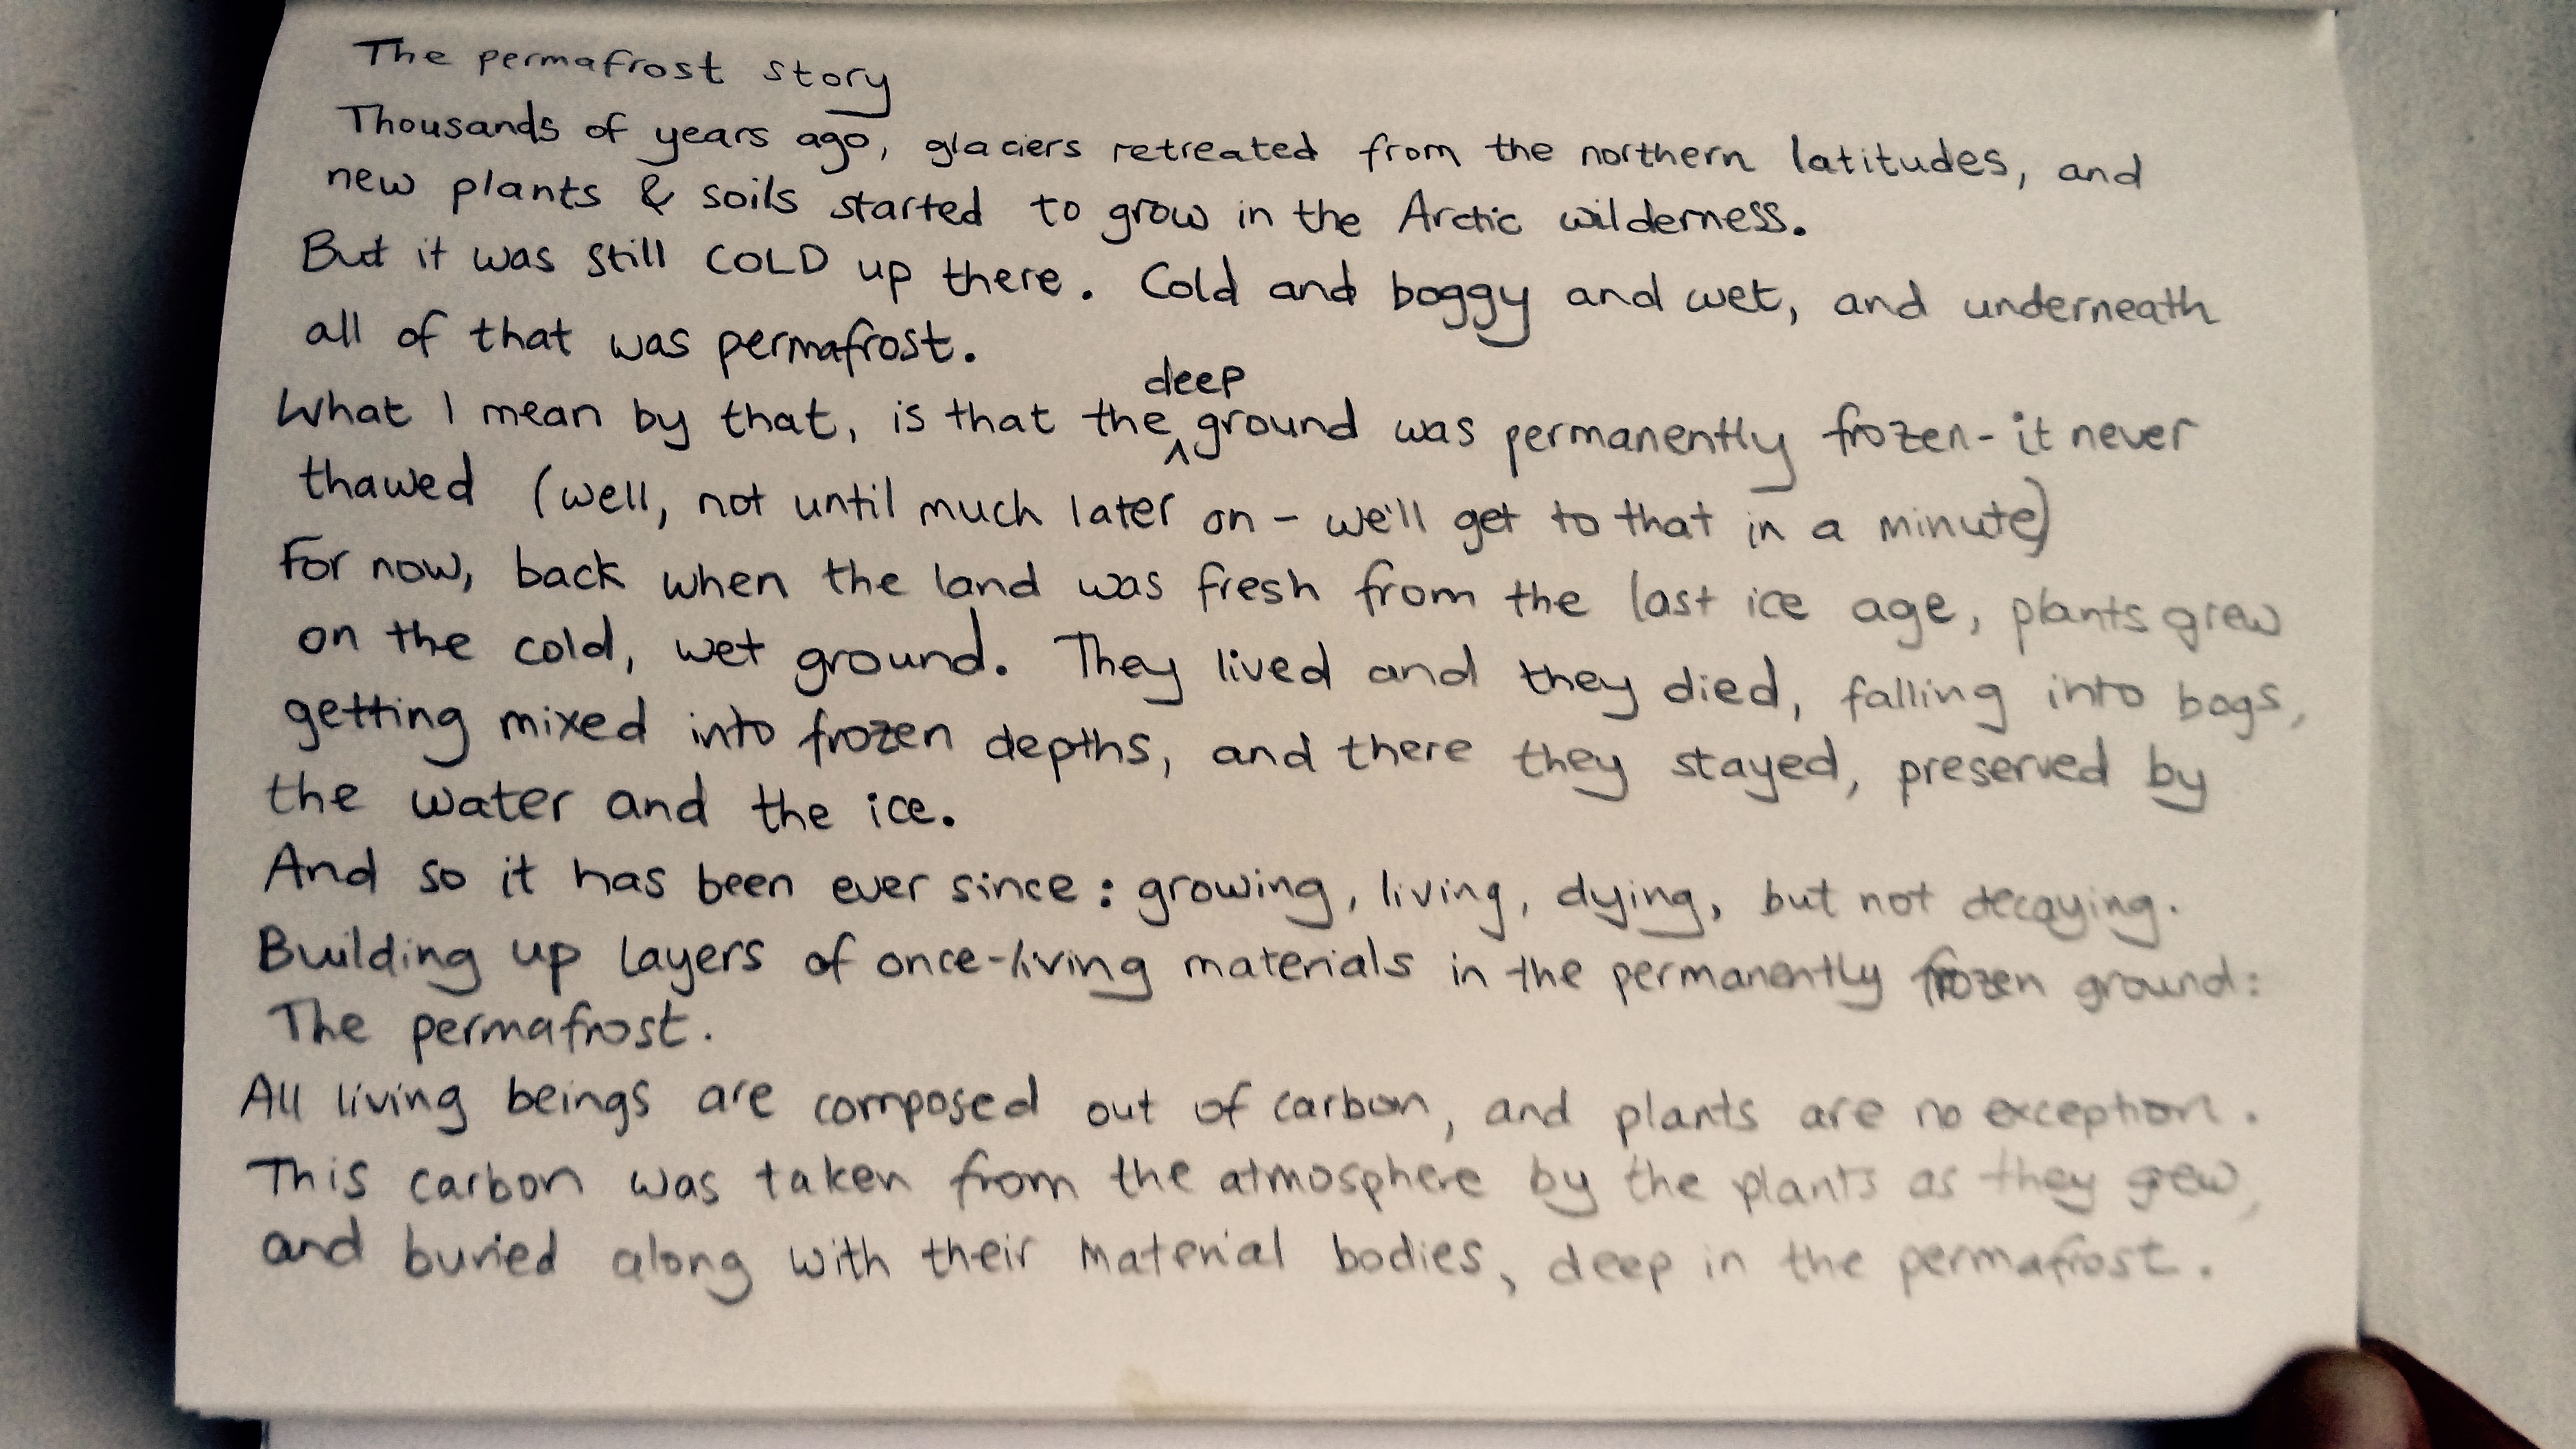 The permafrost story
Thousands of years ago, glaciers retreated from the northern latitudes, and
new plants & soils started to grow in the Arctic wilderness.
But it was still COLD up there. Cold and boggy and wet, and underneath
all of that was permafrost.
What I mean by that, is that the deep ground was permanently frozen - it never
thawed (well, not until much later on - we'll get to that in a minute)
For now, back when the land was fresh from the last ice age, plants grew
on the cold, wet ground. They lived and they died, falling into bogs,
getting mixed into frozen depths, and there they stayed, preserved by
the water and the ice.
And so it has been ever since: growing, living, dying, but not decaying.
Building up layers of once-living materials in the permanently frozen ground:
The permafrost.
All living beings are composed out of carbon, and plants are no exception.
This carbon was taken from the atmosphere by the plants as they grew,
and buried along with their material bodies, deep in the permafrost.